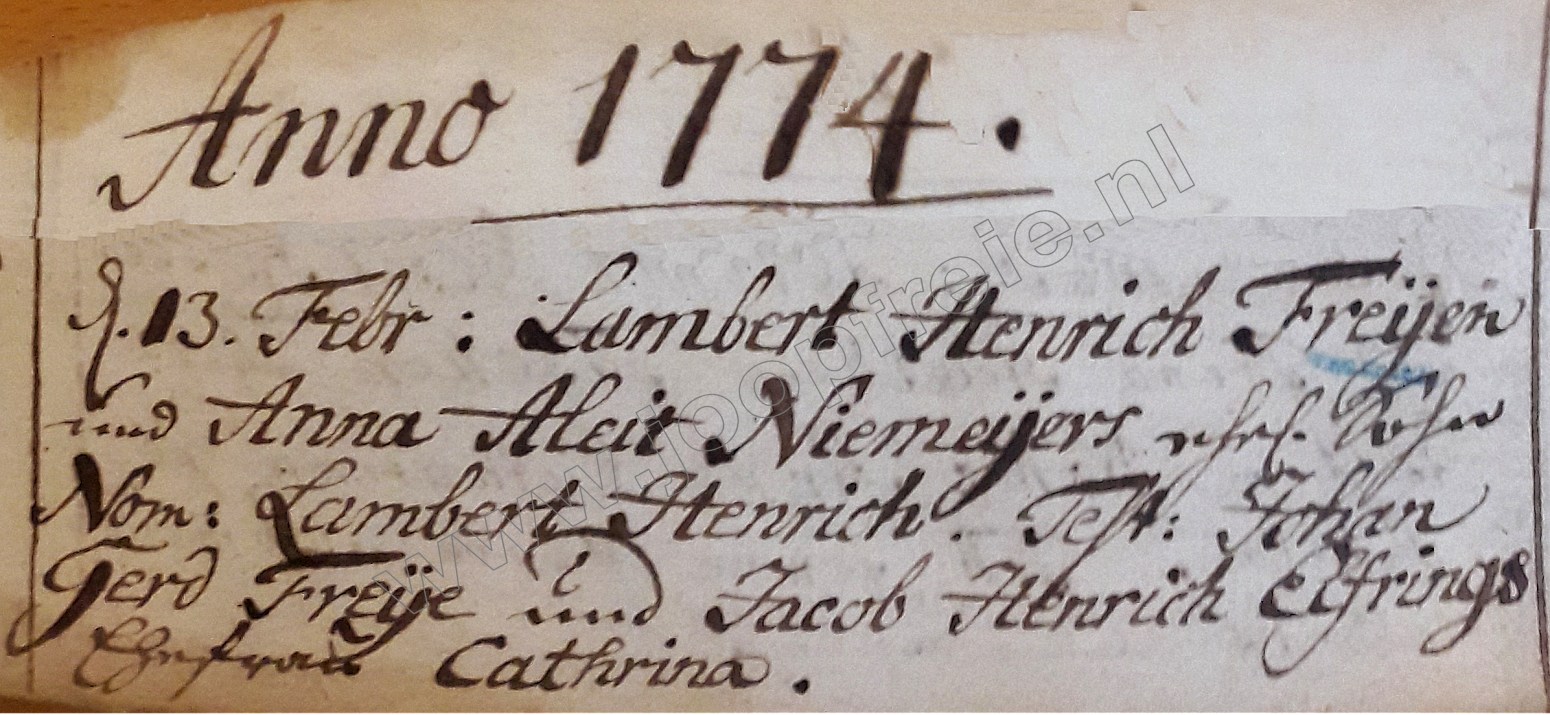 Anno 1774.
d. 13. Febr: Lambert Henrich Freijen
und Anna Aleit Niemeijers ehel. Sohn
Nom: Lambert Henrich. Test: Johan
Gerd Freije und Jacob Henrich Elfrings
Ehefrau Cathrina.
www.joopfreie.nl